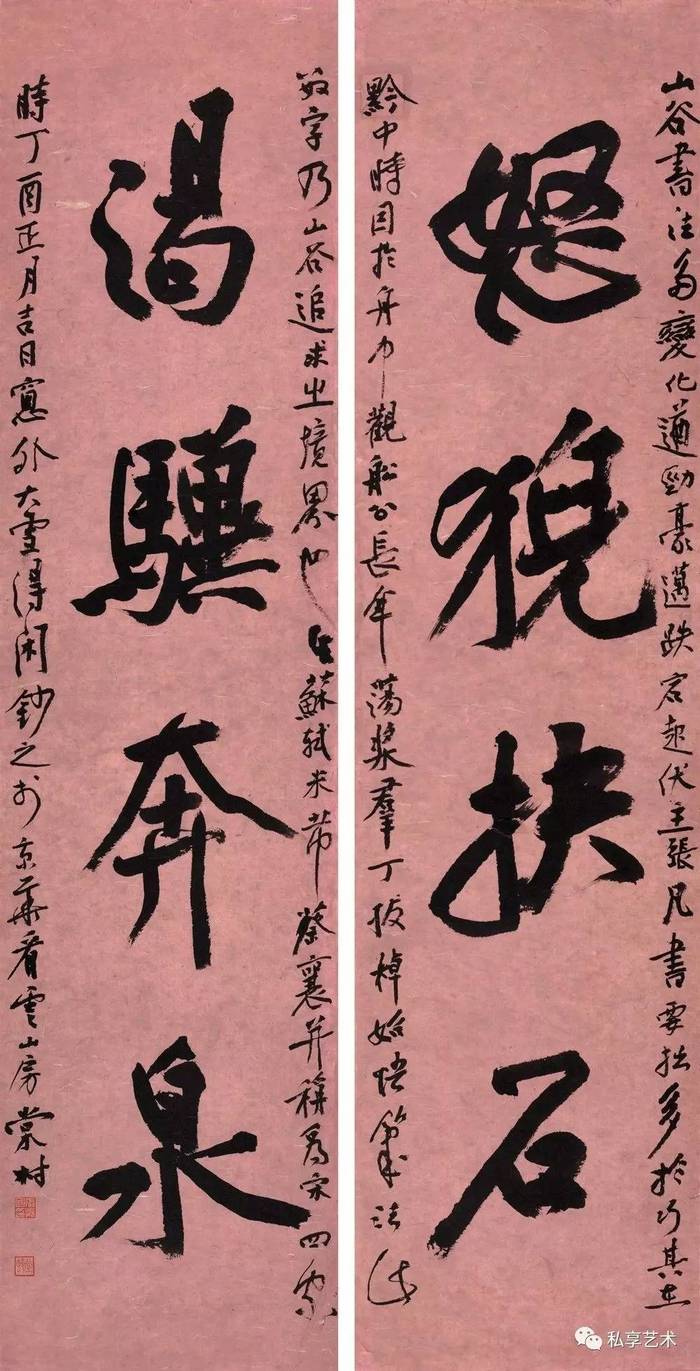 山谷書法多變化遒勁豪邁跌宕起伏主張凡書要拙多於巧其在
怒猊抉石
黔中時因於舟中觀船公長年蕩槳羣丁拔棹始悟筆法此
數字乃山谷追求之境界也與蘇軾米芾蔡襄并稱爲宋四家
渴驥奔泉
時丁酉正月吉日窗外大雪得閑鈔之於京華看雲山房棠村
私享艺术